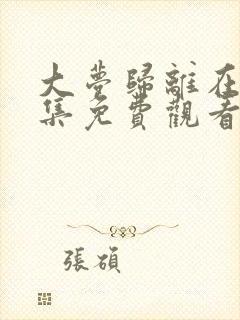 大夢歸離在
集免費觀看
張碩